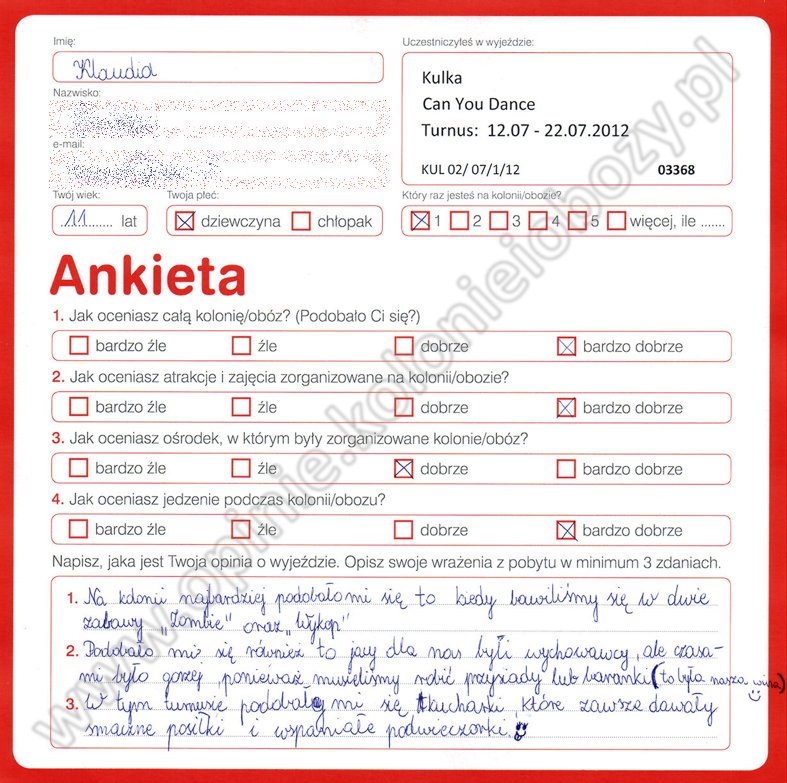 Imię:
Klaudia
Nazwisko:
e-mail:
Twój wiek:
11 lat
Twoja płeć:
dziewczyna chłopak
Uczestniczyłeś w wyjeździe:
Kulka
Can You Dance
Turnus: 12.07 - 22.07.2012
KUL 02/ 07/1/12 03368
Który raz jesteś na kolonii/obozie?
1 2 3 4 5 więcej, ile .......
Ankieta
1. Jak oceniasz całą kolonię/obóz? (Podobało Ci się?)
bardzo źle źle dobrze bardzo dobrze
2. Jak oceniasz atrakcje i zajęcia zorganizowane na kolonii/obozie?
bardzo źle źle dobrze bardzo dobrze
3. Jak oceniasz ośrodek, w którym były zorganizowane kolonie/obóz?
bardzo źle źle dobrze bardzo dobrze
4. Jak oceniasz jedzenie podczas kolonii/obozu?
bardzo źle źle dobrze bardzo dobrze
Napisz, jaka jest Twoja opinia o wyjeździe. Opisz swoje wrażenia z pobytu w minimum 3 zdaniach.
1. Na kolonii najbardziej podobało mi się to kiedy bawiliśmy się w dwie
zabawy „Zombie" oraz „Wykop"
2. Podobało mi się również to jacy dla nas byli wychowawcy, ale czasa-
mi było gorzej, ponieważ musieliśmy robić przysiady lub baranki (to była nasza wina)
3. W tym turnusie podobały mi się kucharki, które zawsze dawały
smaczne posiłki i wspaniałe podwieczorki.
www.opinie.kolonieiobozy.pl